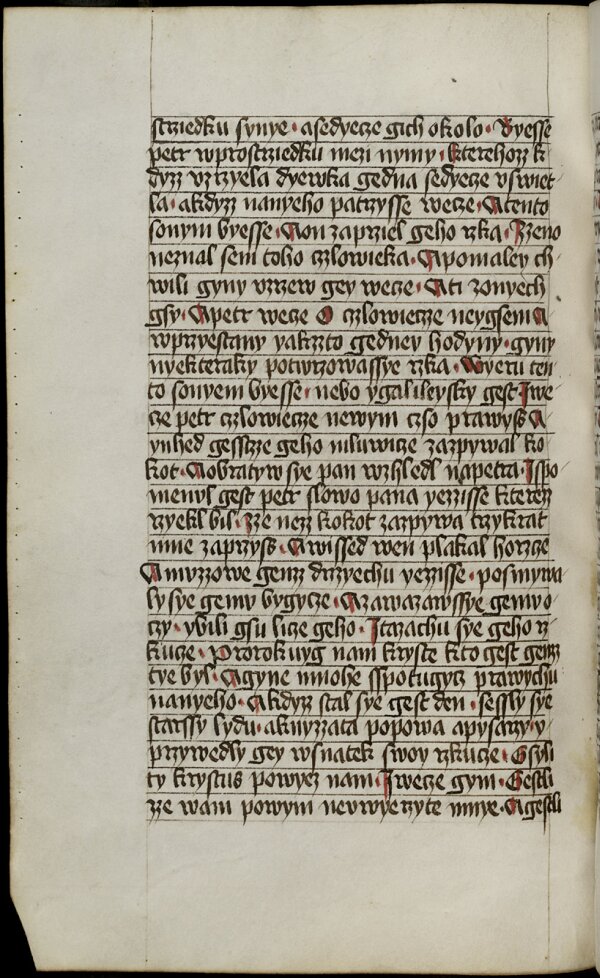 strziedku synye · asedyecze gich okolo · Byesse
petr wprostrziedku mezi nymy · kterehozz k
dyzz vzrzyela dyewka gedna sedyecze vswiet
la · akdyzz nanyeho patrzysse wecze · Atento
sonym byesse · Aon zaprziel geho rzka · Zzeno
neznal sem toho czlowieka · Apomaley ch
wili gyny vzrzew gey wecze · Ati zonyech
gsy · Apetr wecze O czlowiecze neygsem A
wprzyestany yakzto gedney hodyny · gyny
nyekteraky potwrzowassye rzka · Wyeru ten
to sonyem byesse · nebo ygalileysky gest Iwe
cze petr czlowiecze newym czso prawyss A
ynhed gesstze geho mluwicze zazpywal ko
kot · Aobratyw sye pan wzhledl napetra · Ispo
menul gest petr slowo pana yezzisse kterez
rzyekl bil · zze nezz kokot zazpywa trzykrat
mne zaprzyss · Awissed wen plakal horzcze
Amuzzowe genz drzyechu yezzisse · posmywa
ly sye gemu bygycze · Azawazawssye gemu o
czy · ybili gsu licze geho · Itazachu sye geho rz
kucze · Prorokuyg nam kryste kto gest genz
tye byl · Agyne mnohe sspotugycz prawychu
nanyeho · Akdyzz stal sye gest den · sessly sye
starssy lydu · aknyzzata popowa apysarzy · y
przywedly gey wsnatek swoy rzkucze · Gsyli
ty krystus powyez nam · Iwecze gym · Gestli
zze wam powym neuwyerzyte mnye · Agestli